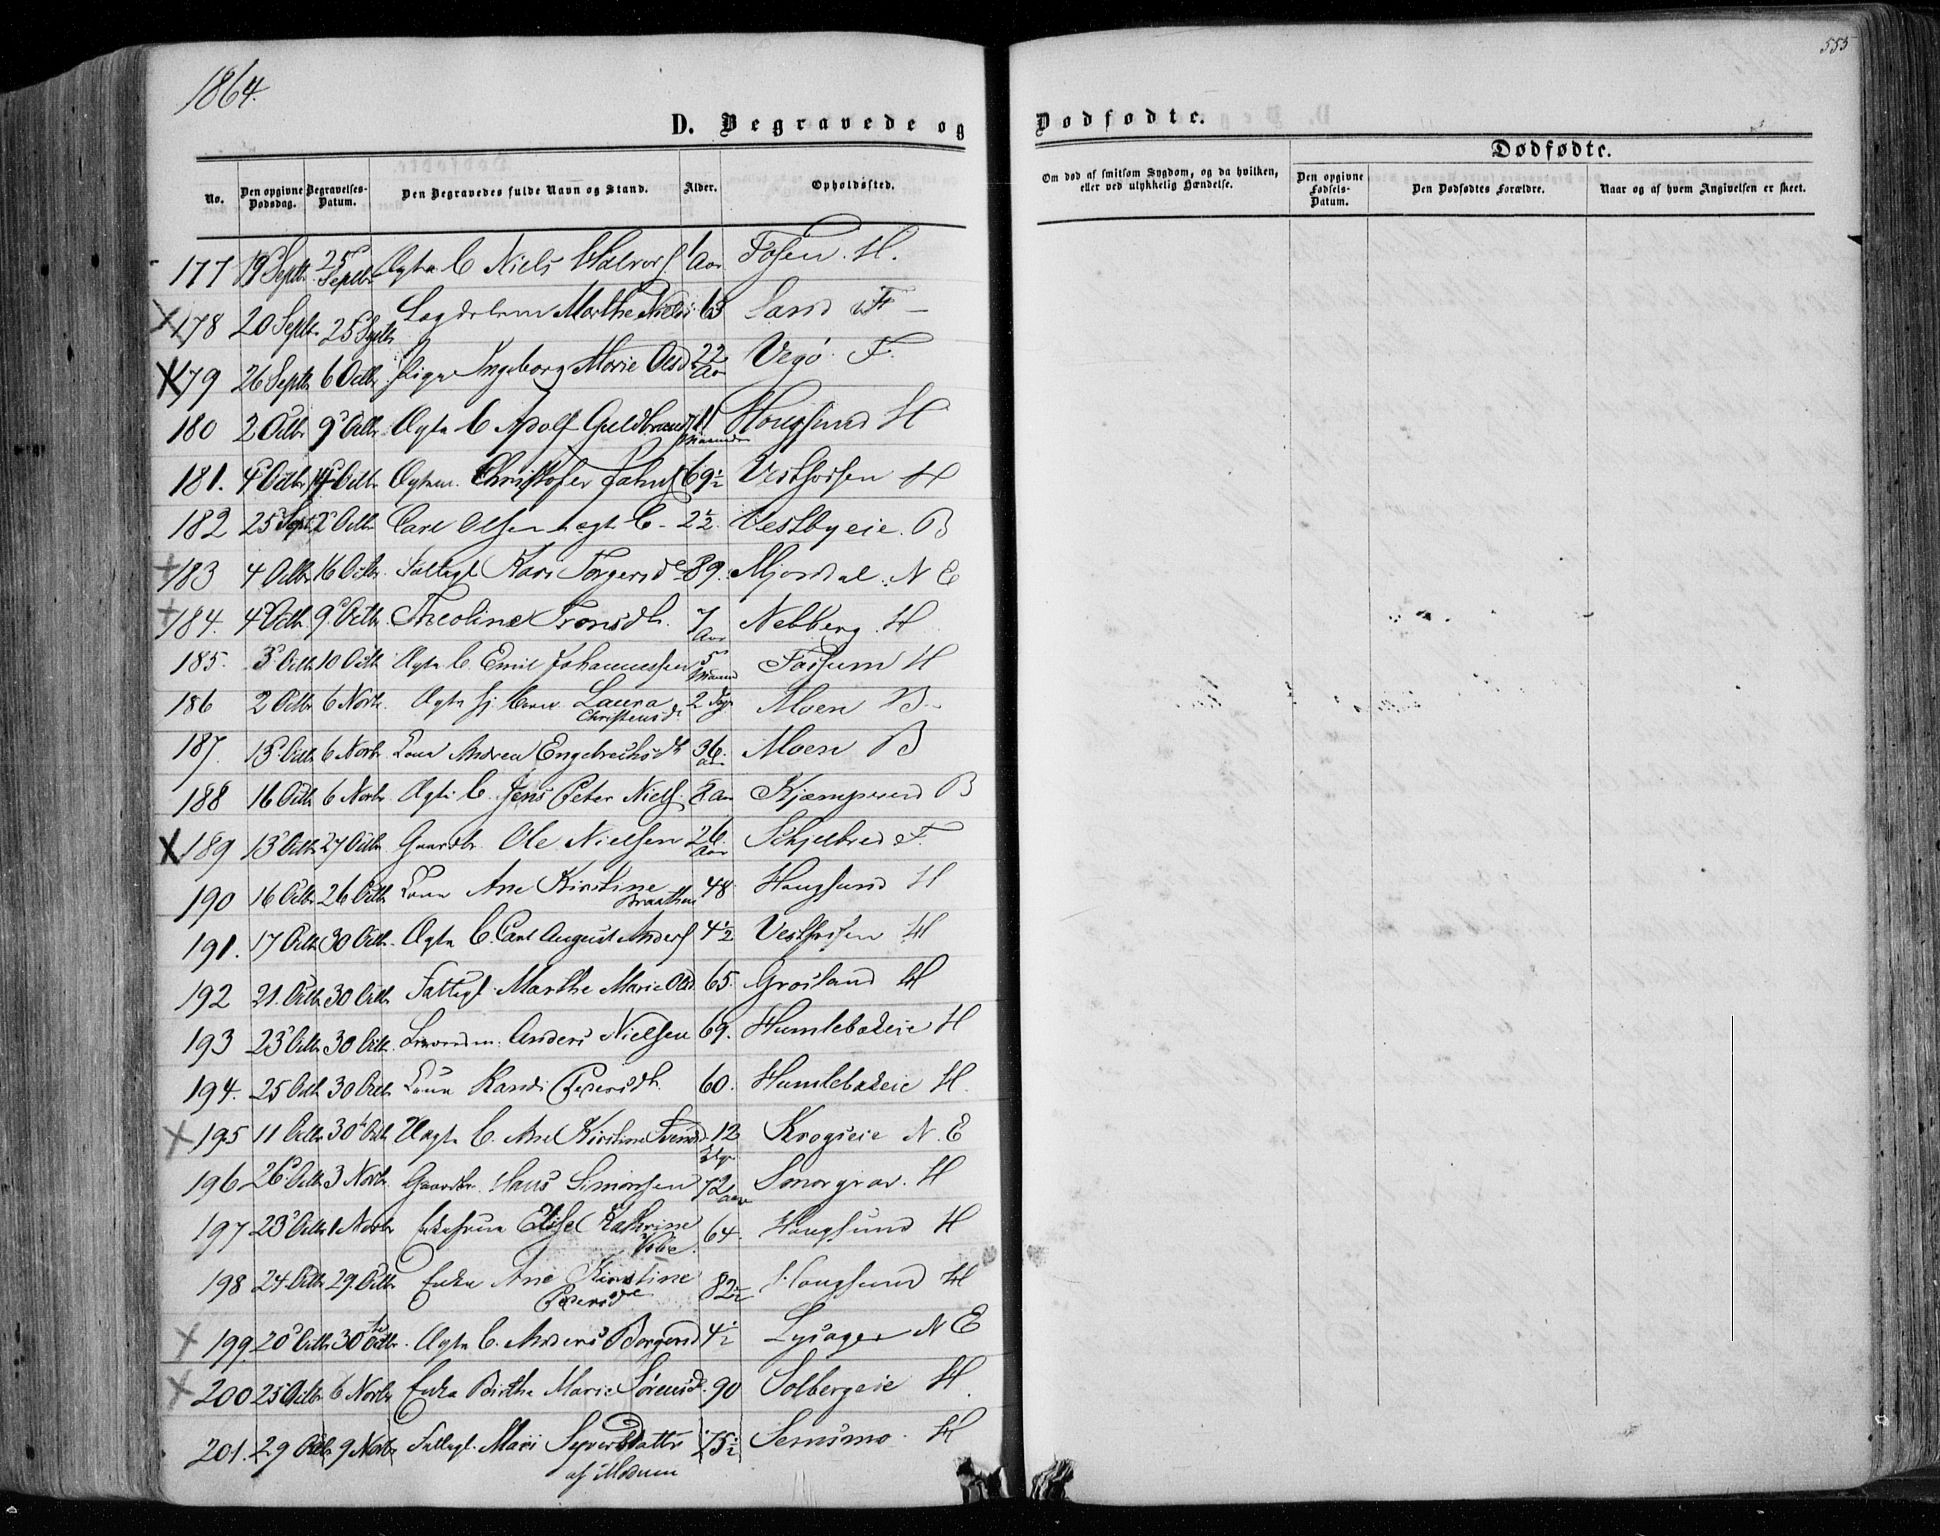 1864.
555
D. Begravede og Dødfødte.
No. Den opgivne Dødsdag. Begravelses-Datum. Den Begravedes fulde Navn og Stand. Alder. Opholdssted. Om død af smitsom Sygdom, og da hvilken, eller ved ulykkelig Hændelse.
Dødfødte.
Den opgivne Fødsels-Datum. Den Dødfødtes Forældre. Naar og af hvem Angivelsen er skeet.
177 19 Septbr 25 Septbr Ægte C Niels Halvors. 1 Aar Fosen. H.
178 20 Septbr 25 Septbr Marthe Nielsd 63 Sand F
179 26 Septbr 6 Octbr Pige Ingeborg Marie Olsd 22 Aar Vegö F.
180 2 Octbr 9 Octbr Ægte C Adolf Guldbrands 11 Maaneder Hougsund H
181. 4 Octbr 14 Octbr Christofer Johns 69½ Vestfossen H
182 25 Sept 2 Octbr Carl Olsen ægt C 2½ Vestbyeie. B
183 4 Octbr 16 Octbr Fattigl Kari Torgersd 89. Mjøndal. N E
184. 4 Octbr 9 Octbr Theoline Tronsdt. 7 Aar Nebberg. H
185. 3 Octbr 10 Octbr Ægte C Emil Johannessen 5 Maaned Fossum H
186 2 Octbr 6 Novbr Ægte Laura Christensd 2 Dage Moen B
187. 13 Octbr 6 Novbr Kone Andrea Engebrechtsdt 36. aar Moen B
188 16 Octbr 6 Novbr Ægte C. Jens Peter Niels. 8 Aar Kjæmperud B
189 13 Octbr 27 Octbr Gaardbr. Ole Nielsen 26. Aar Schjelbred F.
190 16 Octbr 26 Octbr Kone Ane Kirstine Braathen 48 Hougsund H
191. 17 Octbr 30 Octbr. Ægte C. Carl August Anders 4½ Vestfossen H
192 21. Octbr 30 Octbr Fattigl. Marthe Marie Olsd 65. Grosland H
193 23 Octbr 30 Octbr. Anders Nielsen 69. Humlebækeie H
194. 25 Octbr 30 Octbr Kone Randi Pedersdt. 60. Humlebækeie H.
195 11 Octbr 30 Octbr Uægte C. Ane Kirstine Svendsd 12 Dage Krogseie N. E
196 26 Octbr 3 Novbr. Gaardbr. Hans Simonsen 72 aar Smørgrav. H
197 23 Octbr 1 Novbr Enkefrue Elise Kathrine 64. Hougsund H
198 24 Octbr 29. Octbr Enke Ane Kirstine Pedersd 82½ Hougsund H
199. 20 Octbr 30 Octbr. Ægte C. Anders Borgersd 4½ Lysager N E
200 25 Octbr 6 Novbr Enke Birthe Marie Sørensd. 90 Solbergeie H.
201. 29 Octbr 9 Novbr Fattigl. Mari Syverdatter af Modum 75½ Semsmo. H